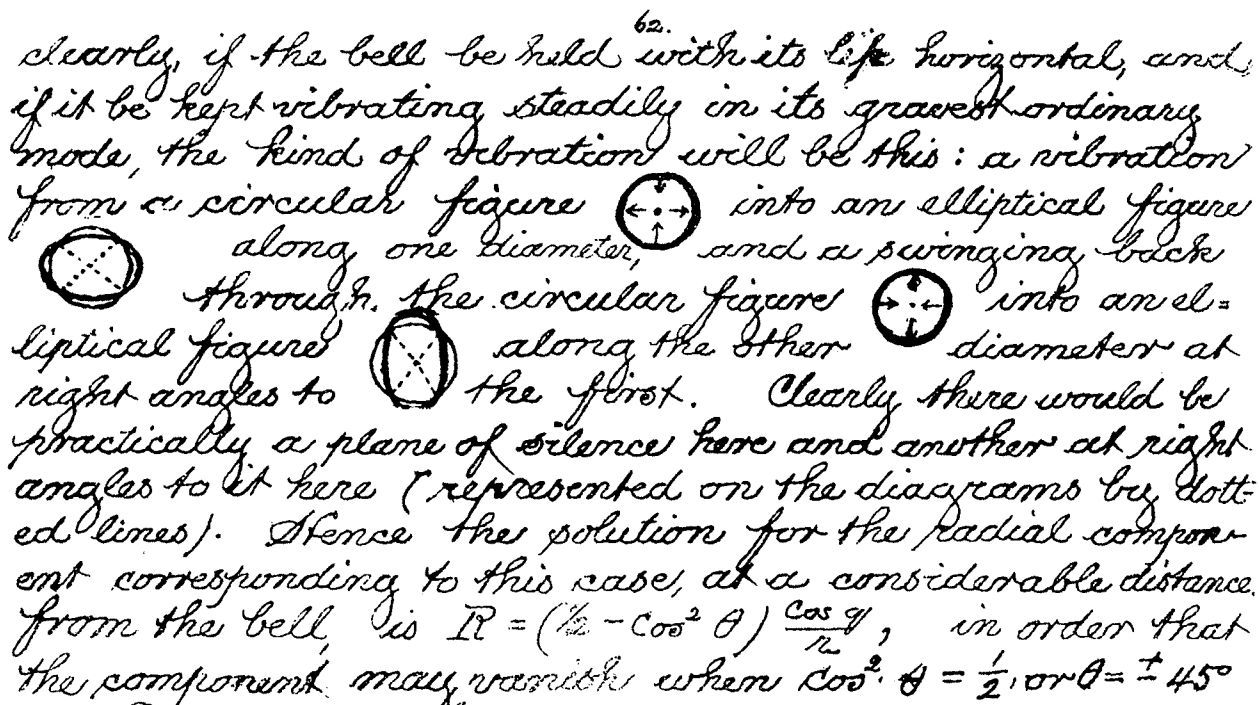 62.
clearly, if the bell be held with its lip horizontal, and
if it be kept vibrating steadily in its gravest ordinary
mode, the kind of vibration will be this: a vibration
from a circular figure into an elliptical figure
along one diameter, and a swinging back
through. the circular figure into an el=
liptical figure along the other diameter at
right angles to the first. Clearly there would be
practically a plane of silence here and another at right
angles to it here (represented on the diagrams by dott=
ed lines). Hence the solution for the radial compon-
ent corresponding to this case, at a considerable distance
from the bell, is R = (½ - Cos² θ) Cos q/r, in order that
the component may vanish when cos² θ = 1/2, or θ = ± 45°